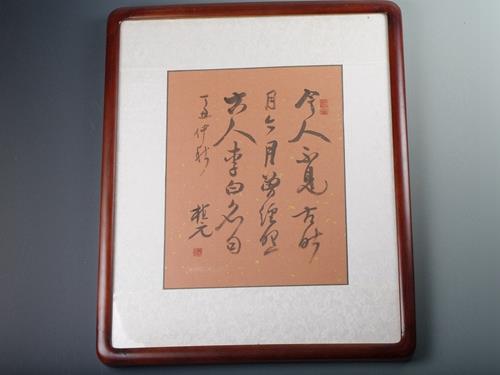 今人不见古时
月今月曾经照
古人李白名句
丁丑仲秋
桂元